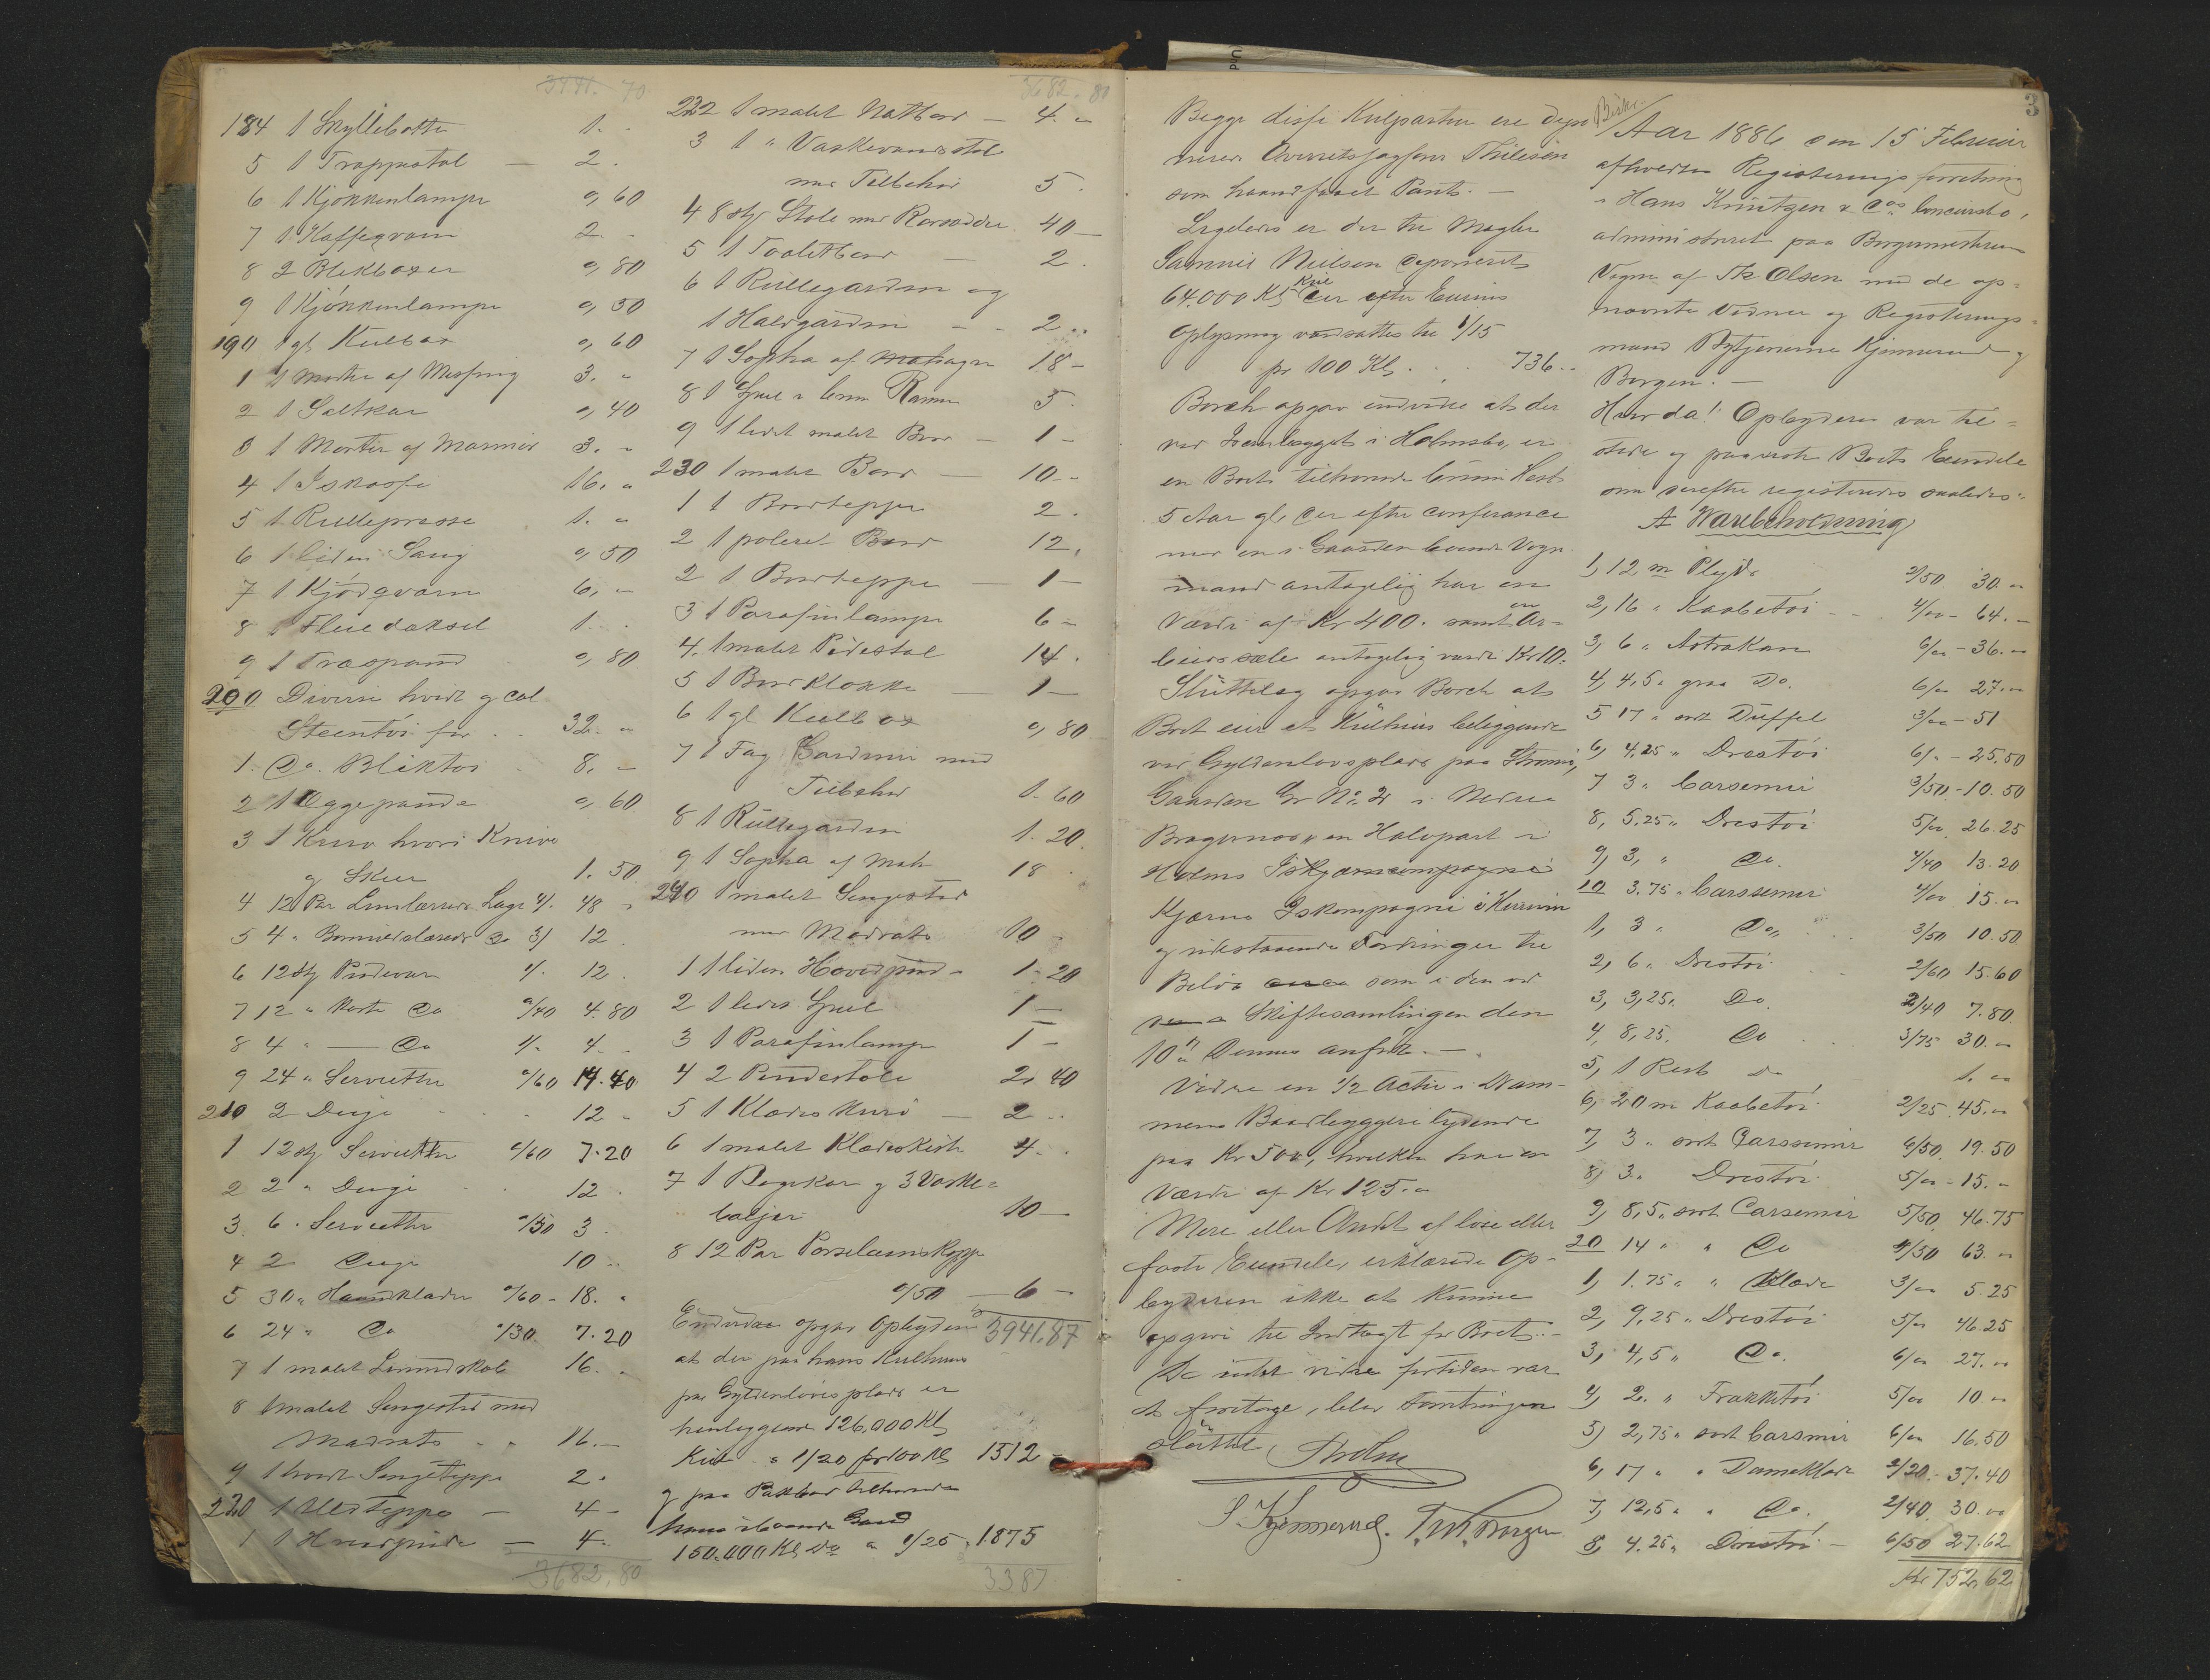 3441. 70
184 1 Skyllebøtte 1. -
5 1 Trappestol — 2.
6 1 Kjøkkenlampe 0,60
7 1 Kaffeqvern 2. -
8 2 Blikboxer 0,80
9 1 Kjøkkenlampe 0,50
190 1 gl. Kulbox 0,60
1 1 Morter af Messing 3. "
2 1 Saltkar 0,40
3 1 Morter af Marmor 3. "
4 1 Iskasse 16. "
5 1 Rullepresse 1. "
6 1 liden Saug 0,50
7 1 Kjødqvern 6, "
8 1 Fluedaksel 1. .
9 1 Træspand 0,80
200 Diverse hvidt og col
Steentøi for 32. "
1. Do. Bliktøi 8. -
2 1 Eggepande 0,60
3 1 Kurv hvori Knive
og Skeer 1. 50
4 12 Par Linlærreds Lagn 4/. 48 -
5 4 " Bomuldslærreds Do 3/ 12.
6 12 stk Pudevar 1/. 12.
7 12 " korte Do 0/40 4.80
8 4 " — Do 1/. 4. -
9 24 " Servietter 0/60 14.40
210 2 Duge 12 -
1 12 stk Servietter 0/60 7.20
2 2 " Duge 12.
3. 6. Servietter 0/50 3.
4 2 Duge 10 ..
5 30 " Haandklæder 0/60 - 18. "
6 24 " Do 0/30. 7.20
7 1 malet Linnedskab 16. .
8 1 malet Sengested med
Madrats 16. —
9 1 hvidt Sengeteppe 2.
220 1 Uldteppe — 4 -
1 1 Hovedpude — 4.
3682,80
3682. 80
222 1 malet Natbord — 4. "
3 1 " Vaskevandsstol
med Tilbehør 5.
4 8 stk Stole med Rørsæder 40 —
5 1 Toiletbord — 2.
6 1 Rullegardin og
1 Halvgardin - - 2 ..
7 1 Sopha af Mahagni 18 -
8 1 Speil i brun Ramme 5.
9 1 lidet malet Bord — 1 -
230 1 malet Bord — 10 -
1 1 Bordteppe 2.
2 1 poleret Bord 12,
2 1 Bordteppe — 1 —
3 1 Parafinlampe 6 -
4. 1 malet Pidestal 14.
5 1 Bordklokke 1 —
6 1 gl Kulbox 0,80
7 1 Fag Gardiner med
Tilbehør 1. 60
8 1 Rullegardin 1. 20.
9 1 Sopha af Mah 18.
240 1 malet Sengested
med Madrats 10 -
1 1 liden Hovedpude - 1. 20
2 1 lidet Speil 1 —
3 1 Parafinlampe 1 —
4 2 Pindestole 2. 40
5 1 Klædes Kurv — 2 ..
6 1 malet Klædeskiste 4. .
7 1 Bøgekar og 3 Vaske=
baljer 10 —
8 12 Par Porselænskopper
0/50 — 6 —
Endvidere opgav Opbyderen 3941.87
at der paa hans Kulhuus
paa Gyldenløvesplads er
henliggende 126,000 Kl
Kul a 1/20 pr 100 Kl 1512 -
og paa Pakbod tilhørende
hans iboende Gaard
150.000 Kl Do a 1/25 1875
3387
Begge disse Kulpartier ere depo
nerede Overretssagfører Thilesen
som haandfaaet Pant. —
Ligeledes er der til Mægler
Samuel Nielsen deponeret
64.000 Kl Kul der efter Eierens
Oplysning værdsattes til 1/15
pr 100 Kl. . . 736 ..
Borch opgav endvidere at der
ved Svelvigget i Holmsbo, er
en Boets tilhørende brun Hest
5 Aar gl, der efter conferance
med en i Gaarden boende Vogn
mand antagelig har en
Værdi af Kr 400. samt en Ar=
beidssæle antagelig værdi Kr 10.
Sluttelig opgav Borch at
Boet eier et Kulhuus beliggende
ved Gyldenløvsplads paa Strømsø,
Gaarden Gr No. 21 i Nedre
Bragernæs, en Halvpart i
Holms Iskjærncompagni
Kjærns Iskompagni i Hurum
og udestaaende Fordringer til
Beløb som i den ved
Skiftesamlingen den
10de Dennes anført. —
Videre en 1/2 Actie i Dram-
mens Baadbyggeri lydende
paa Kr 500, hvilken har en
Værdi af Kr 125. "
Mere eller Andet af løse eller
faste Eiendele, erklærede Op-
byderen ikke at kunne
opgive til Indtægt for Boet. —
Da intet videre fortiden var
at foretage, blev Forretningen
sluttet,
Tholm
S. Kjennerud. T. M. Borgen
3
Aar 1886 den 15 Februar
afholdtes Registreringsforretning
i Hans Knutzen & Cos Concursbo,
administreret paa Borgermesterens
Vegne af Th. Olsen med de op=
nævnte Vidner og Registrerings=
mænd Bytjenerne Kjennerud og
Borgen. —
Hvor da! Opbyderen var til=
stede og paaviste Boets Eiendele
som derefter registreredes saaledes:
A Varebeholdning
1, 12 m Plyds 2/50 30. "
2, 16 " Kaabetøi - - 4/00 - 64. -
3, 6 " Astrakan 6/00 - 36. "
4, 4,5 " graa Do. 6/00 27. "
5 17 " sort Düffel 3/00 - 51
6, 4.25 " Drestøi 6/. - 25.50
7 3 " Carsemir 3/50. - 10. 50
8, 5.25 " Drestøi 5/00 26.25
9, 3, " Do. 4/40 13. 20
10 3.75 " Carssemir 4/00 15. "
1, 3 " Do " 3/50 10.50
2, 6 " Drestøi 2/60 15.60
3, 3,25 " Do. 2/40 7.80
4, 8,25. Do 3/75 30. "
5, 1 Rest Do 1. "
6, 20 m Kaabetøi 2/25 45. "
7, 3 " sort Carssemir 6/50. 19.50
8, 3 " Drestøi 5/00 - 15. "
9, 8,5 " sort Carsemir 5/50 46.75
20 14 " " Do 4/50 63. "
1, 1.75 " " Klæde 3/00 5.25
2, 9.25 " Drestøi 5/00 46.25
3, 4,5 " Do. 6/00 27. "
4, 2. " Frakketøi 5/00 10 "
5, 2,75 " sort Carsmir 6/00 16.50
6, 17 " " Dameklæde 2/20. - 37.40
7, 12,5 " " Do. 2/40. 30. "
8, 4.25 " Drestøi - 6/50 27.62
Kr 752,62